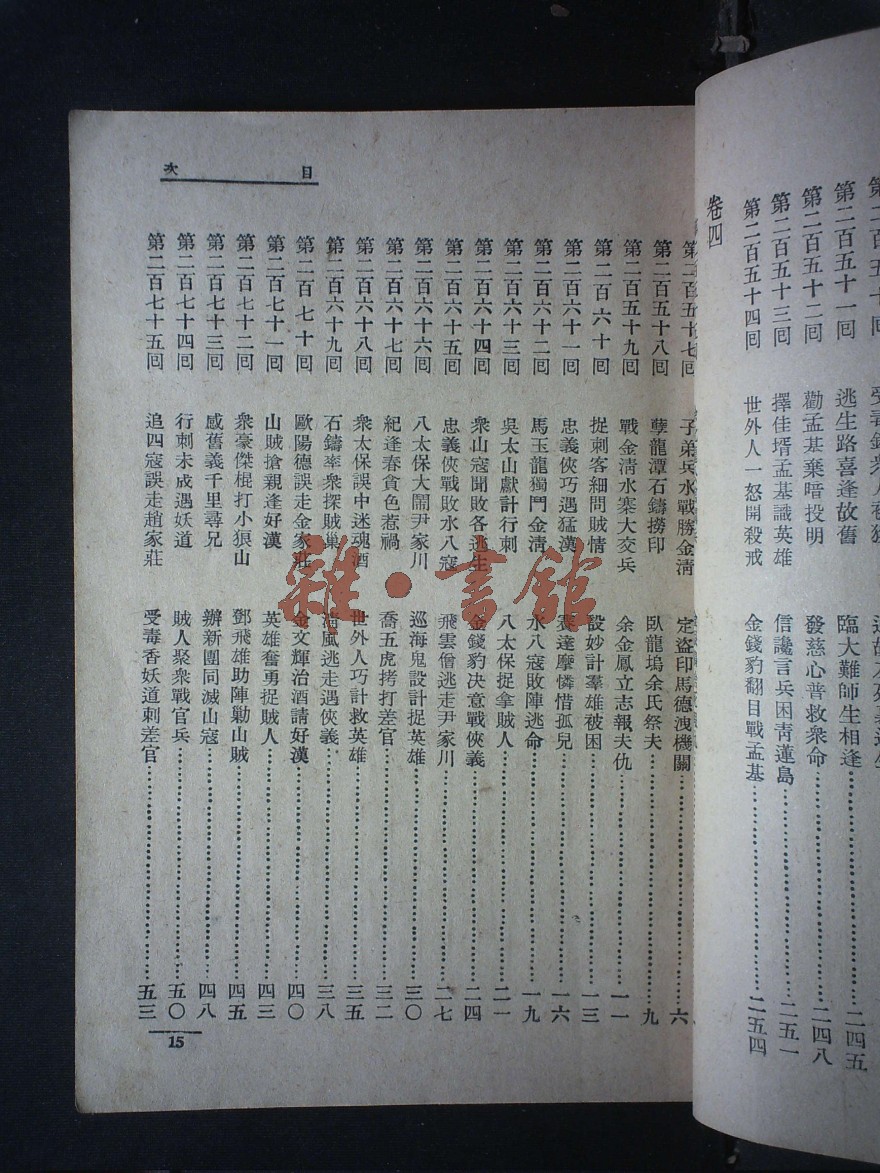 第二百五十一回 逃生路喜逢故舊 臨大難師生相逢 二四五
第二百五十二回 勸孟基棄暗投明 發慈心普救衆命 二四八
第二百五十三回 擇佳壻孟基識英雄 信讒言兵困靑蓮島 二五一
第二百五十四回 世外人一怒開殺戒 金錢豹翻目戰孟基 二五四
卷四
目次
第二百五十七回 子弟兵水戰勝金淸 定盜印馬德洩機關 六
第二百五十八回 孽龍潭石鑄撈印 臥龍塢余氏祭夫 九
第二百五十九回 戰金淸水寨大交兵 余金鳳立志報夫仇 一一
第二百六十回 捉刺客細問賊情 設妙計羣雄被困 一三
第二百六十一回 忠義俠巧遇猛漢 賽達摩憐惜孤兒 一六
第二百六十二回 馬玉龍獨鬥金淸 水八寇敗陣逃命 一九
第二百六十三回 吳太山獻計行刺 八太保捉拿賊人 二一
第二百六十四回 衆山寇聞敗各逃生 金錢豹決意戰俠義 二四
第二百六十五回 忠義俠戰敗水八寇 飛雲僧逃走尹家川 二七
第二百六十六回 八太保大鬧尹家川 巡海鬼設計捉英雄 三〇
第二百六十七回 紀逢春貪色惹禍 喬五虎拷打差官 三二
第二百六十八回 衆太保誤中迷魂酒 世外人巧計救英雄 三五
第二百六十九回 石鑄率衆探賊巢 淸風逃走遇俠義 三八
第二百七十回 歐陽德誤走金家莊 金文輝治酒請好漢 四〇
第二百七十一回 山賊搶親逢好漢 英雄奮勇捉賊人 四三
第二百七十二回 衆豪傑棍打小狽山 鄧飛雄助陣勦山賊 四五
第二百七十三回 感舊義千里尋兄 辦新團同滅山寇 四八
第二百七十四回 行刺未成遇妖道 賊人聚衆戰官兵 五〇
第二百七十五回 追四寇誤走趙家莊 受毒香妖道刺差官 五三
15
雜·書館